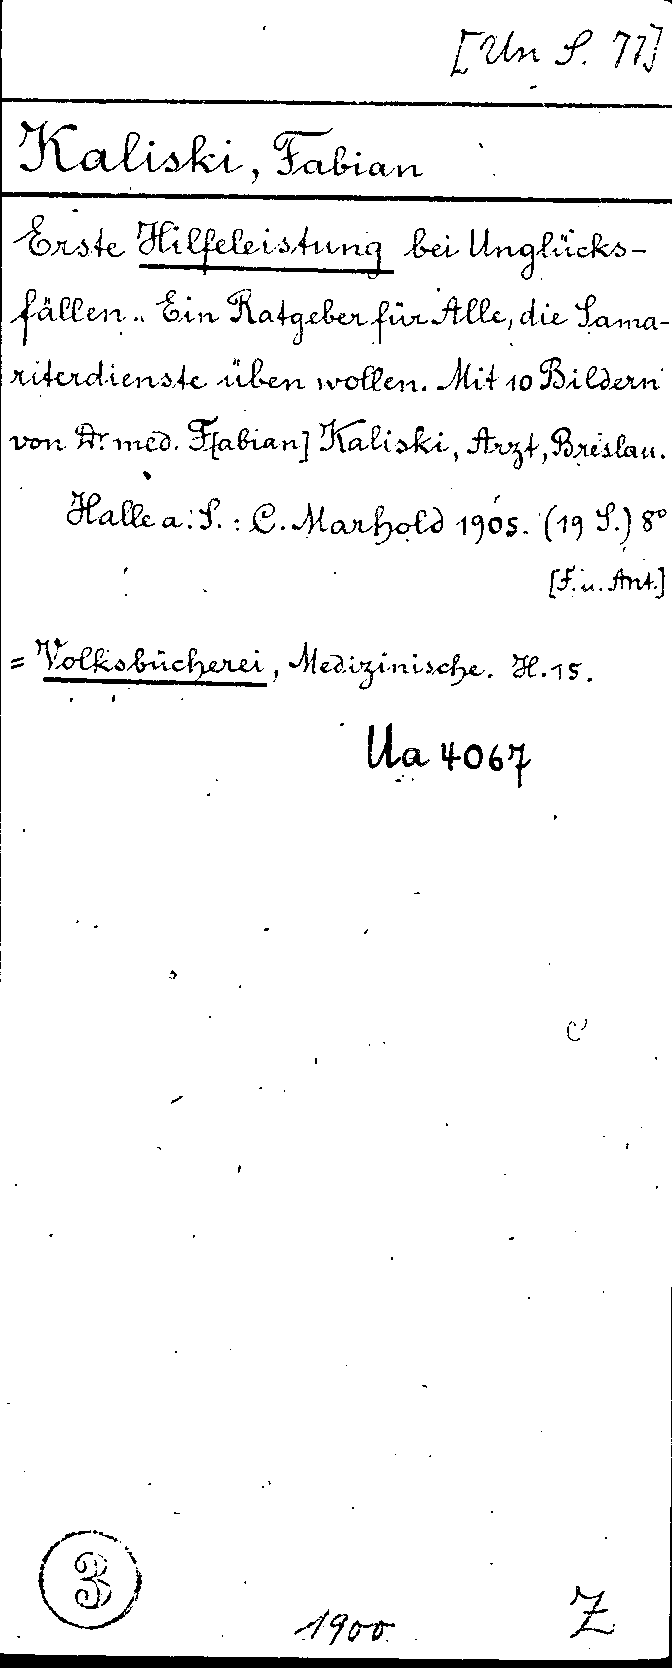 [Un S. 77]
Kaliski, Fabian
Erste Hilfeleistung bei Unglücks-
fällen. Ein Ratgeber für Alle, die Sama-
riterdienste üben wollen. Mit 10 Bildern
von Dr. med. F[abian] Kaliski, Arzt, Breslau.
Halle a. S. : C. Marhold 1905. (19 S.) 8°
[F. u. Ant.]
= Volksbücherei, Medizinische. H. 15.
Ua 4067
3
1900
Z